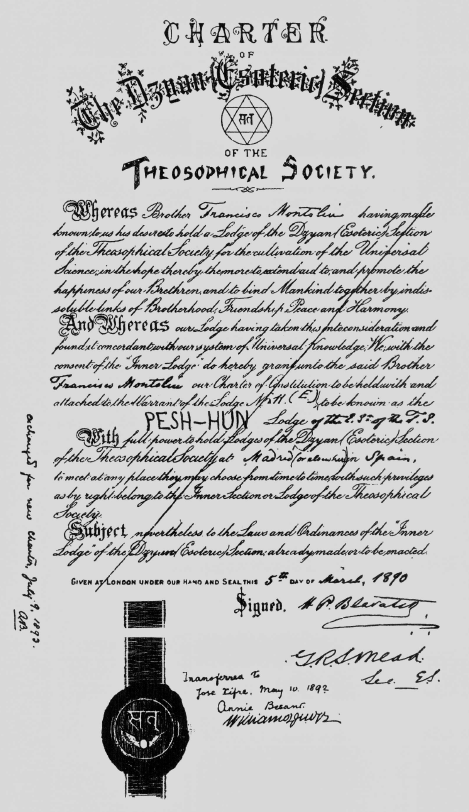 CHARTER
OF
The Dzyan (Esoteric) Section
सत
OF THE
THEOSOPHICAL SOCIETY.
Whereas Brother Francisco Montoliu having made
known to us his desire to hold a Lodge of the Dzyan (Esoteric) Section
of the Theosophical Society for the cultivation of the Universal
Science, in the hope thereby the more to extend aid to, and promote the
happiness of our Brethren, and to bind Mankind together by indis-
soluble links of Brotherhood, Friendship, Peace and Harmony.
And Whereas our Lodge having taken this into consideration and
found it concordant with our system of Universal Knowledge, We, with the
consent of the 'Inner Lodge' do hereby grant unto the said Brother
Francisco Montoliu our Charter of Constitution to be held with and
attached to the Warrant of the Lodge No 11. (E.) to be known as the
PESH-HUN Lodge of the E.S. of the T.S.
With full power to hold Lodges of the Dzyan (Esoteric) Section
of the Theosophical Society at Madrid (or elsewhere in Spain,
to meet at any place they may choose from time to time, with such privileges
as by right belong to the Inner Section or Lodge of the Theosophical
Society.
Subject, nevertheless to the Laws and Ordinances of the 'Inner
Lodge' of the Dzyan (Esoteric) Section already made or to be enacted.
GIVEN AT LONDON UNDER OUR HAND AND SEAL THIS 5th DAY OF March, 1890
Signed. H P Blavatsky
G.R.S. Mead.
Sec. E.S.
Transferred to
José Xifré, May 10. 1892
Annie Besant
William Q. Judge
सत्
exchanged for new charter, July 9, 1893.
AB.